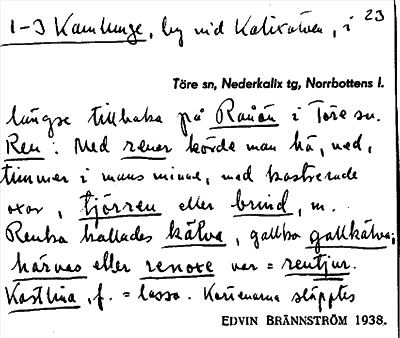 23
1-3 Kamlunge, by vid Kalixälven, i
Töre sn, Nederkalix tg, Norrbottens l.
längse tillbaka på Rånön i Töre sn.
Ren: Med renar körde man hö, ved,
timmer i mans minne, med kastrerade
oxar, tjörren eller brind, m.
Renko kallades kälva, gallko gallkälva;
härvas eller renoxe var = rentjur.
Kastlina, f. = lasso. Karienarna släpptes
EDVIN BRÄNNSTRÖM 1938.